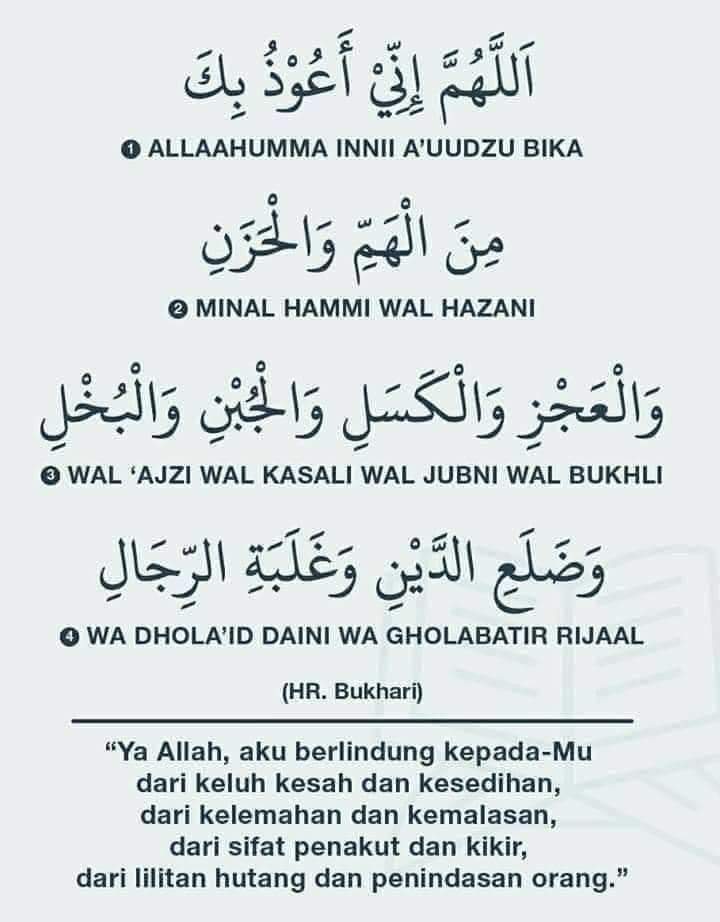 اَللَّهُمَّ إِنِّيْ أَعُوْذُ بِكَ
❶ ALLAAHUMMA INNII A’UUDZU BIKA
مِنَ الْهَمِّ وَالْحَزَنِ
❷ MINAL HAMMI WAL HAZANI
وَالْعَجْزِ وَالْكَسَلِ وَالْجُبْنِ وَالْبُخْلِ
❸ WAL ‘AJZI WAL KASALI WAL JUBNI WAL BUKHLI
وَضَلَعِ الدَّيْنِ وَغَلَبَةِ الرِّجَالِ
❹ WA DHOLA’ID DAINI WA GHOLABATIR RIJAAL
(HR. Bukhari)
“Ya Allah, aku berlindung kepada-Mu
dari keluh kesah dan kesedihan,
dari kelemahan dan kemalasan,
dari sifat penakut dan kikir,
dari lilitan hutang dan penindasan orang.”